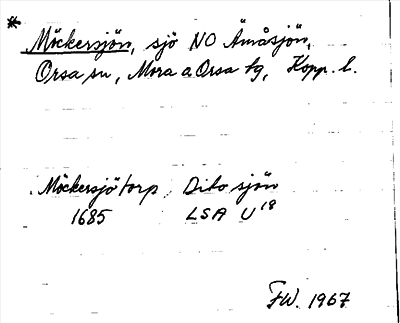 *
Möckersjön, sjö NO Ämåsjön,
Orsa sn, Mora o Orsa tg, Kopp. l.
Möckersjötorp, Dito sjön
1685 LSA U 18
FW. 1967